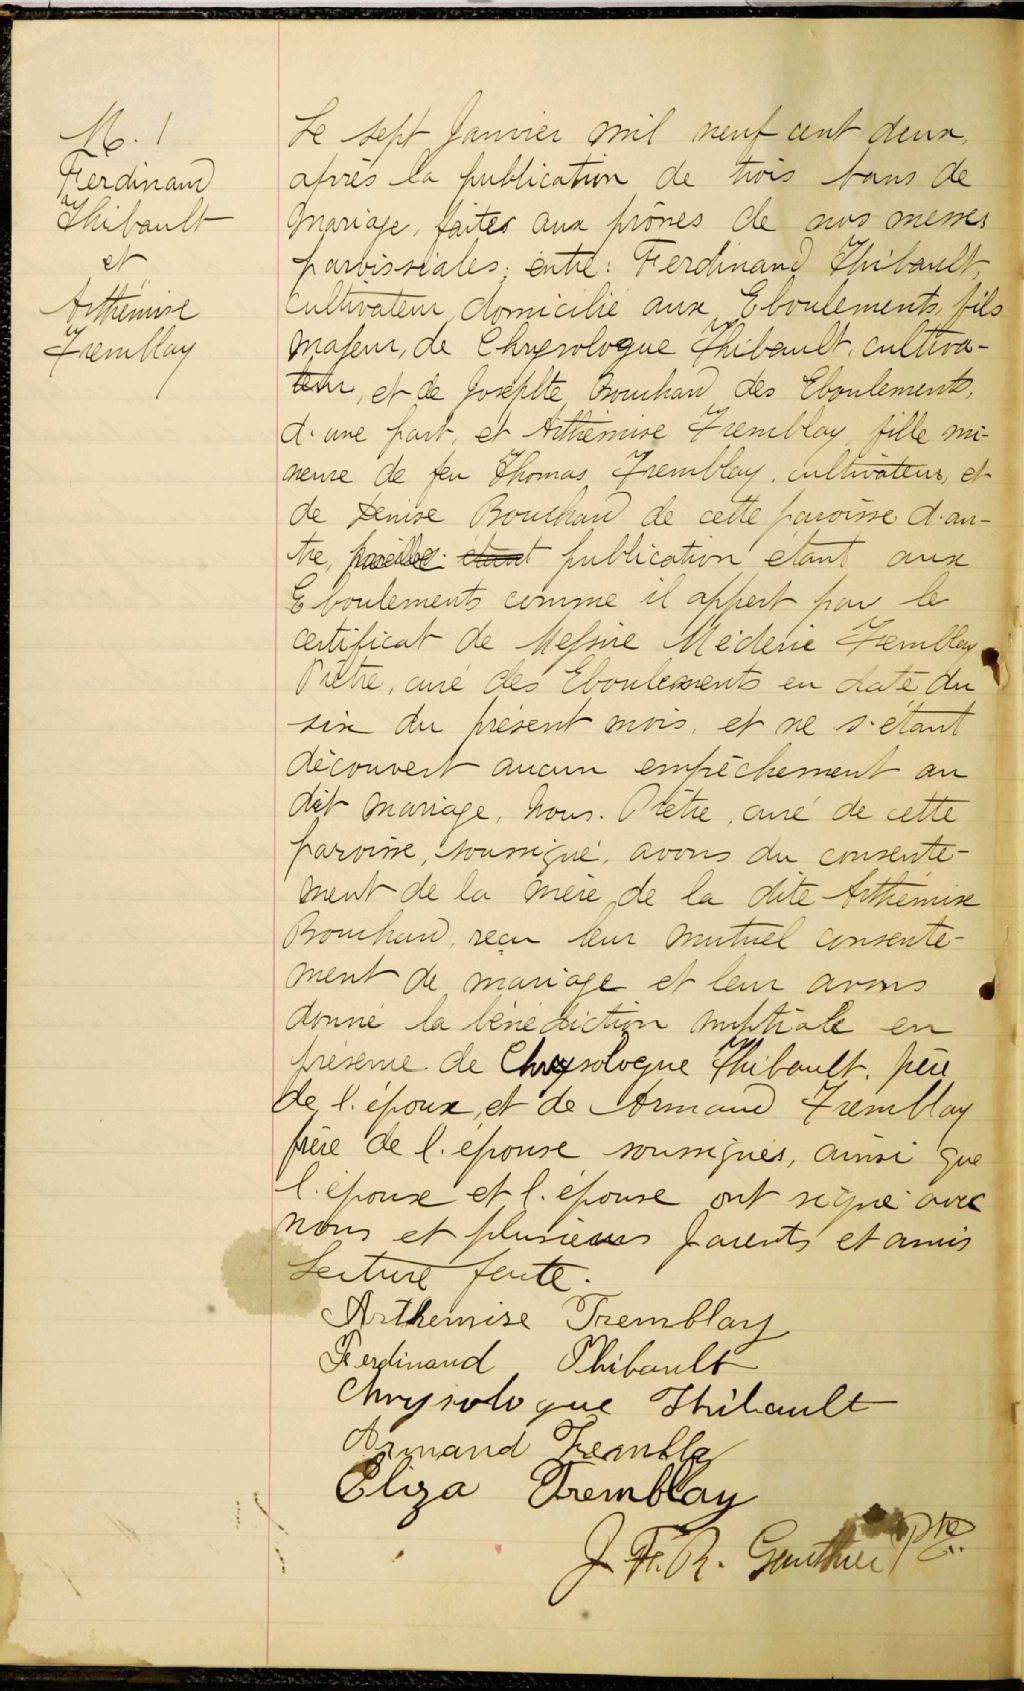 M. 1
Ferdinand
Thibault
et
Arthémise
Tremblay
Le sept Janvier mil neuf cent deux,
après la publication de trois bans de
mariage, faites aux prônes de nos messes
paroissiales, entre: Ferdinand Thibault,
cultivateur domicilié aux Eboulements, fils
majeur, de Chrysologue Thibault, cultiva-
teur, et de Josephte Bouchard des Eboulements,
d'une part, et Arthémise Tremblay, fille mi-
neure de feu Thomas Tremblay, cultivateur, et
de Denise Bouchard de cette paroisse d'au-
tre, pareille étant publication étant aux
Eboulements comme il appert par le
certificat de Messire Méderic Tremblay
Prêtre, curé des Eboulements en date du
six du présent mois, et ne s'étant
découvert aucun empêchement au
dit mariage, Nous. Prêtre, curé de cette
paroisse, soussigné, avons du consente-
ment de la mère de la dite Arthémise
Bouchard, reçu leur mutuel consente-
ment de mariage et leur avons
donné la bénédiction nuptiale en
présence de Chrysologue Thibault, père
de l'époux, et de Armand Tremblay
frère de l'épouse soussignés, ainsi que
l'époux et l'épouse ont signé avec
nous et plusieurs parents et amis
Lecture faite.
Arthemise Tremblay
Ferdinand Thibault
Chrysologue Thibault
Armand Trembla
Eliza Tremblay
J. F. R. Gauthier Ptre